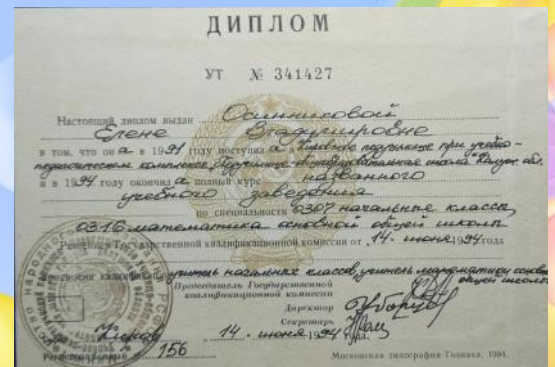 ДИПЛОМ
УТ № 341427
Настоящий диплом выдан Осинниковой
Елене Владимировне
в том, что она в 1991 году поступила в Кировское педучилище при учебно-
педагогическом комплексе школа Калуж. обл.
и в 1994 году окончила полный курс названного
учебного заведения
по специальности 0307 начальные классы,
0316 математика основной общей школы
Решением Государственной квалификационной комиссии от „14“ июня 1994 года
присвоена квалификация учитель начальных классов, учитель математики основной
общей школы
Председатель Государственной
квалификационной комиссии
Директор
Секретарь
г. Киров „14“ июня 1994 года.
Регистрационный № 156
Московская типография Гознака, 1994.